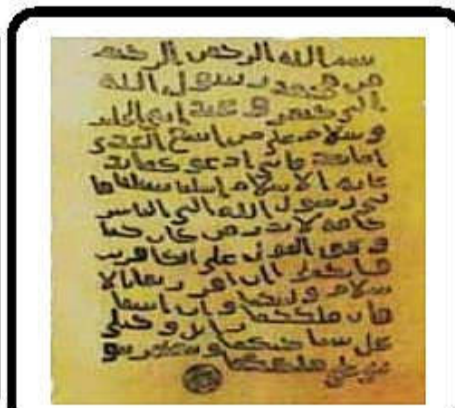 بسم الله الرحمن الرحيم
من محمد رسول الله
الى جيفر و عبد ابني الجلند
وسلام على من اتبع الهدى
اما بعد فاني ادعوكما بد
عايه الاسلام اسلما تسلما فا
ني رسول الله الى الناس
كافه لانذر من كان حيا
و يحق القول على الكافرين
فانكما ان اقررتما بالا
سلام وليتكما وان ابيتما
فان ملككما
وخيلي
ملككما